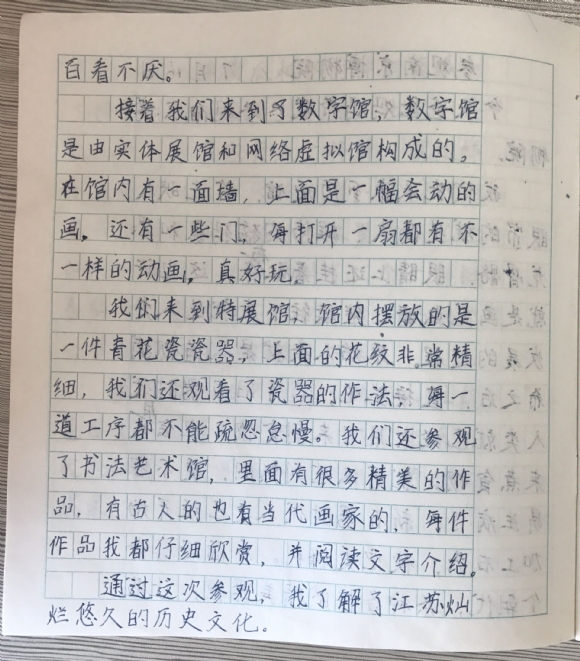 百看不厌。
接着我们来到了数字馆，数字馆
是由实体展馆和网络虚拟馆构成的。
在馆内有一面墙，上面是一幅会动的
画。还有一些门，每打开一扇都有不
一样的动画，真好玩。
我们来到特展馆，馆内摆放的是
一件青花瓷瓷器，上面的花纹非常精
细，我们还观看了瓷器的作法，每一
道工序都不能疏忽怠慢。我们还参观
了书法艺术馆，里面有很多精美的作
品，有古人的也有当代画家的，每件
作品我都仔细欣赏，并阅读文字介绍。
通过这次参观，我了解了江苏灿
烂悠久的历史文化。